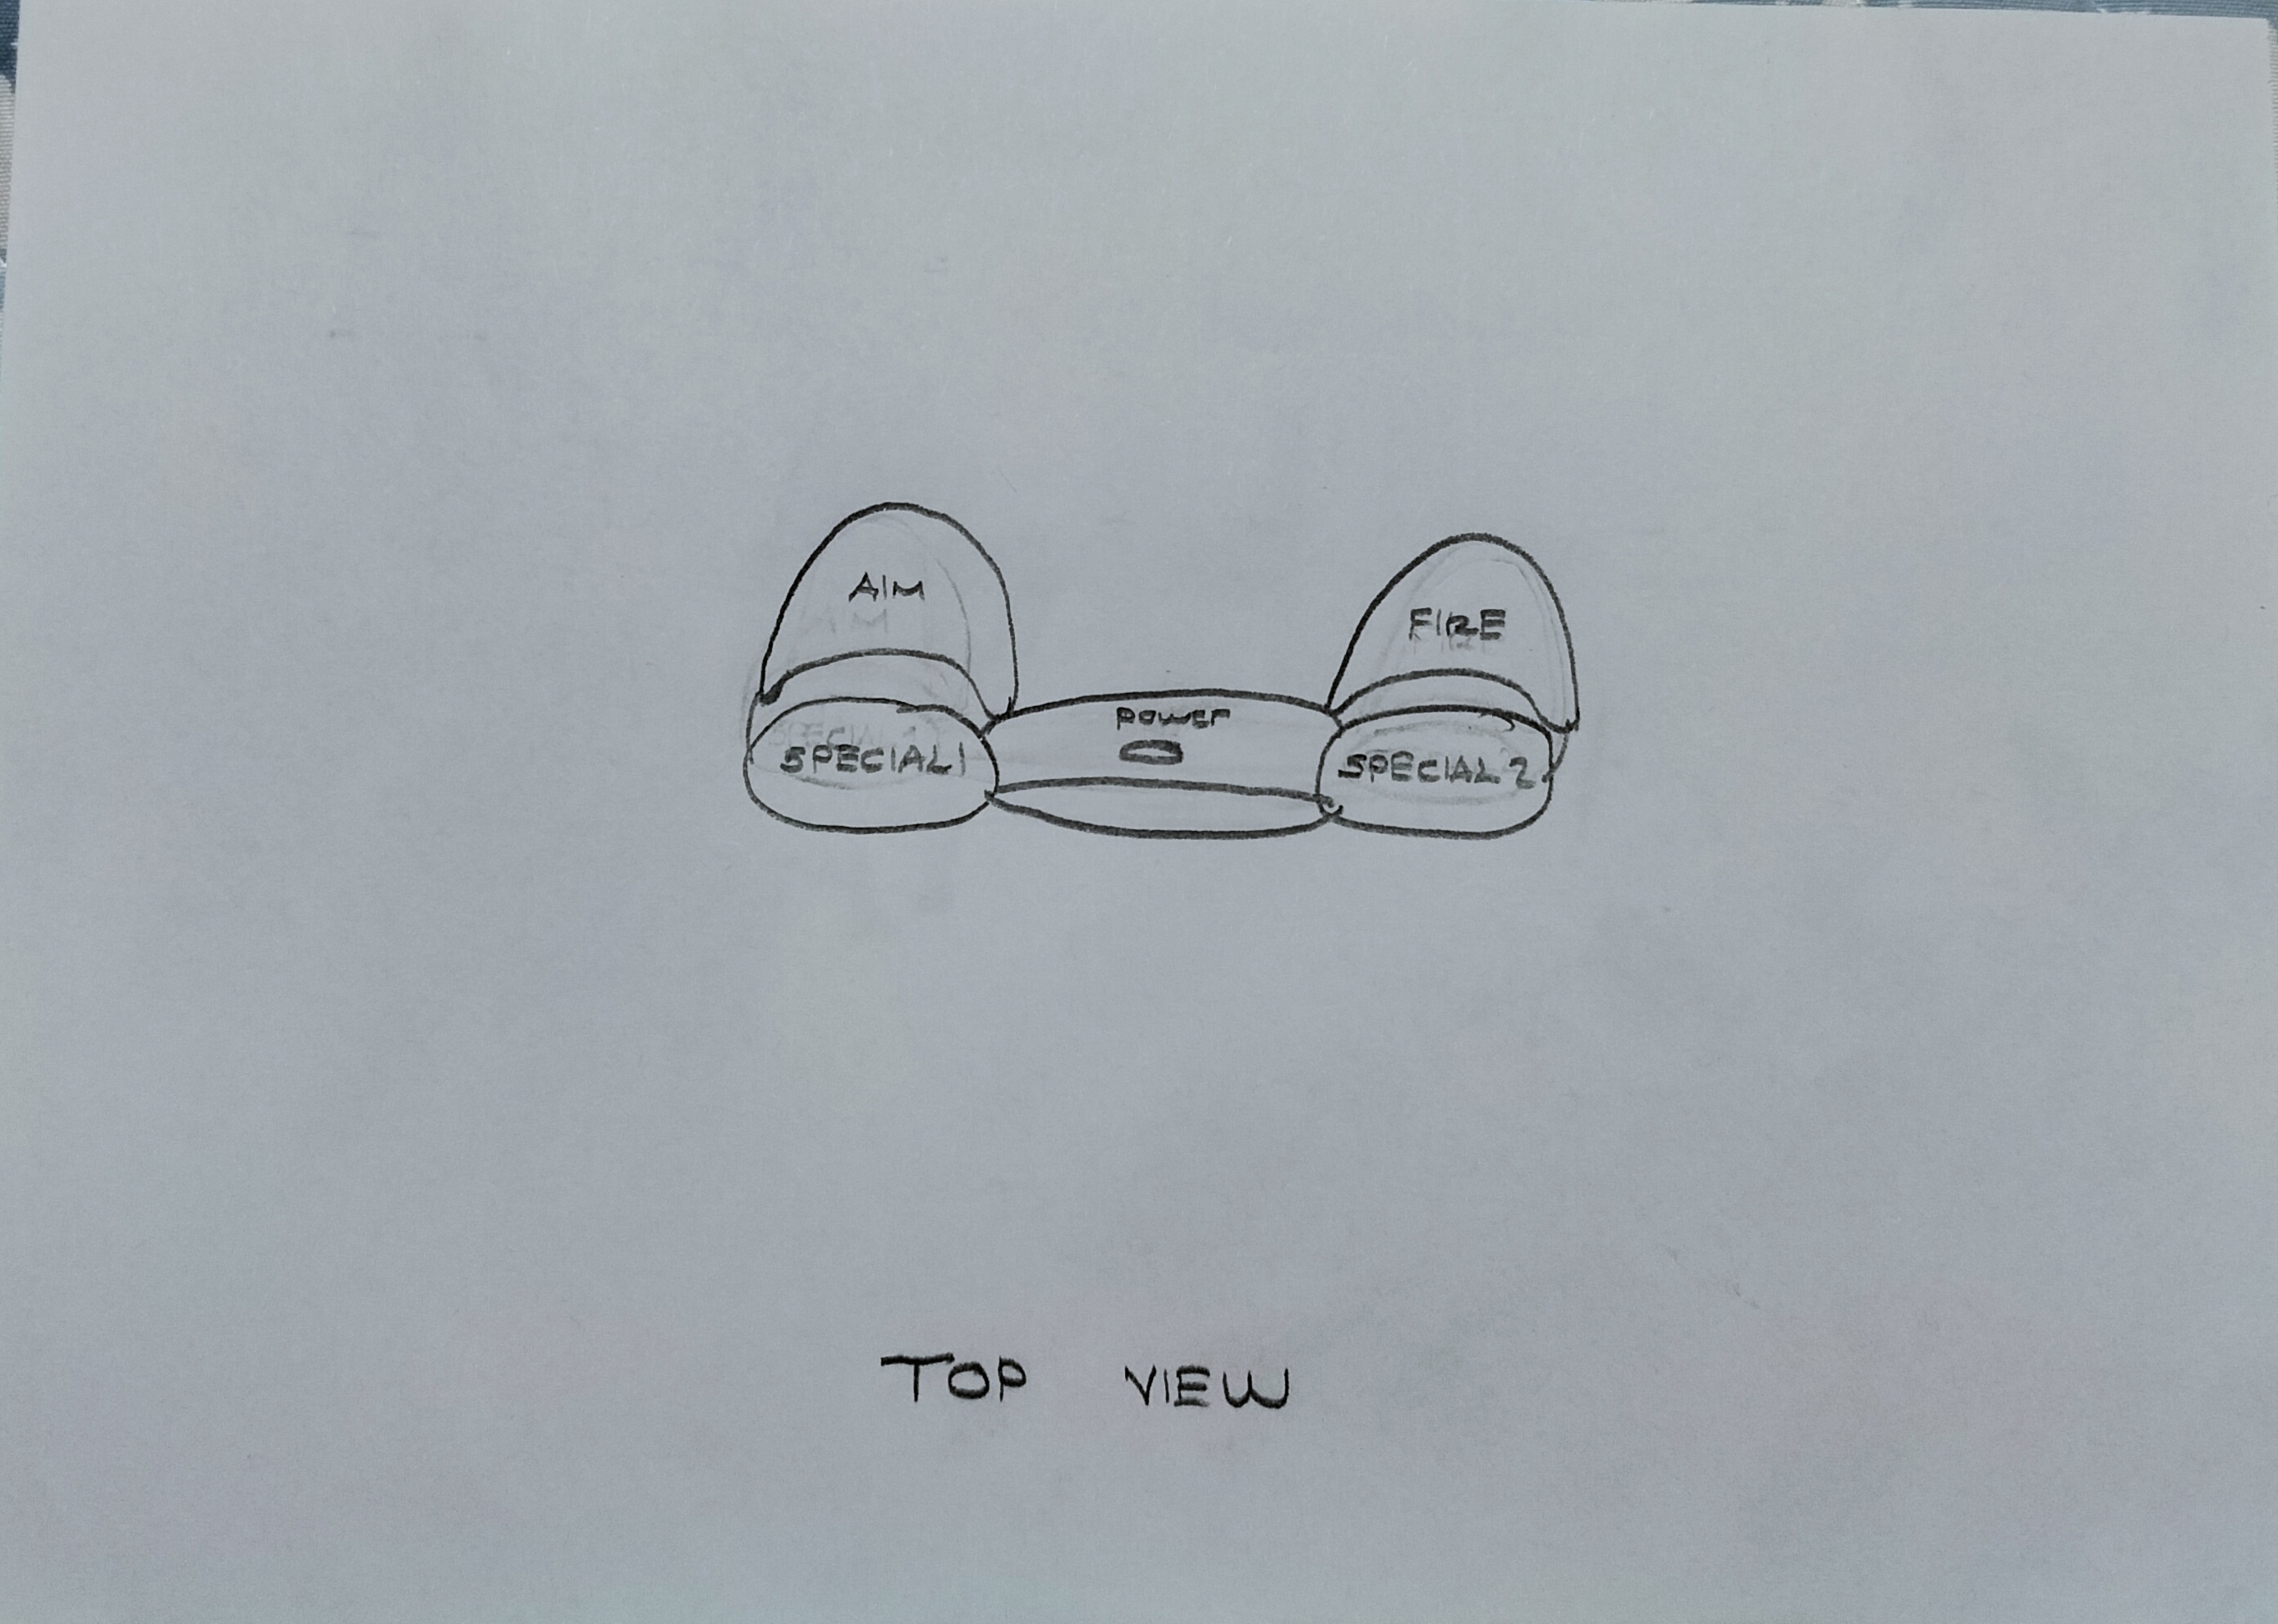 AIM
FIRE
power
SPECIAL1
SPECIAL 2
TOP VIEW